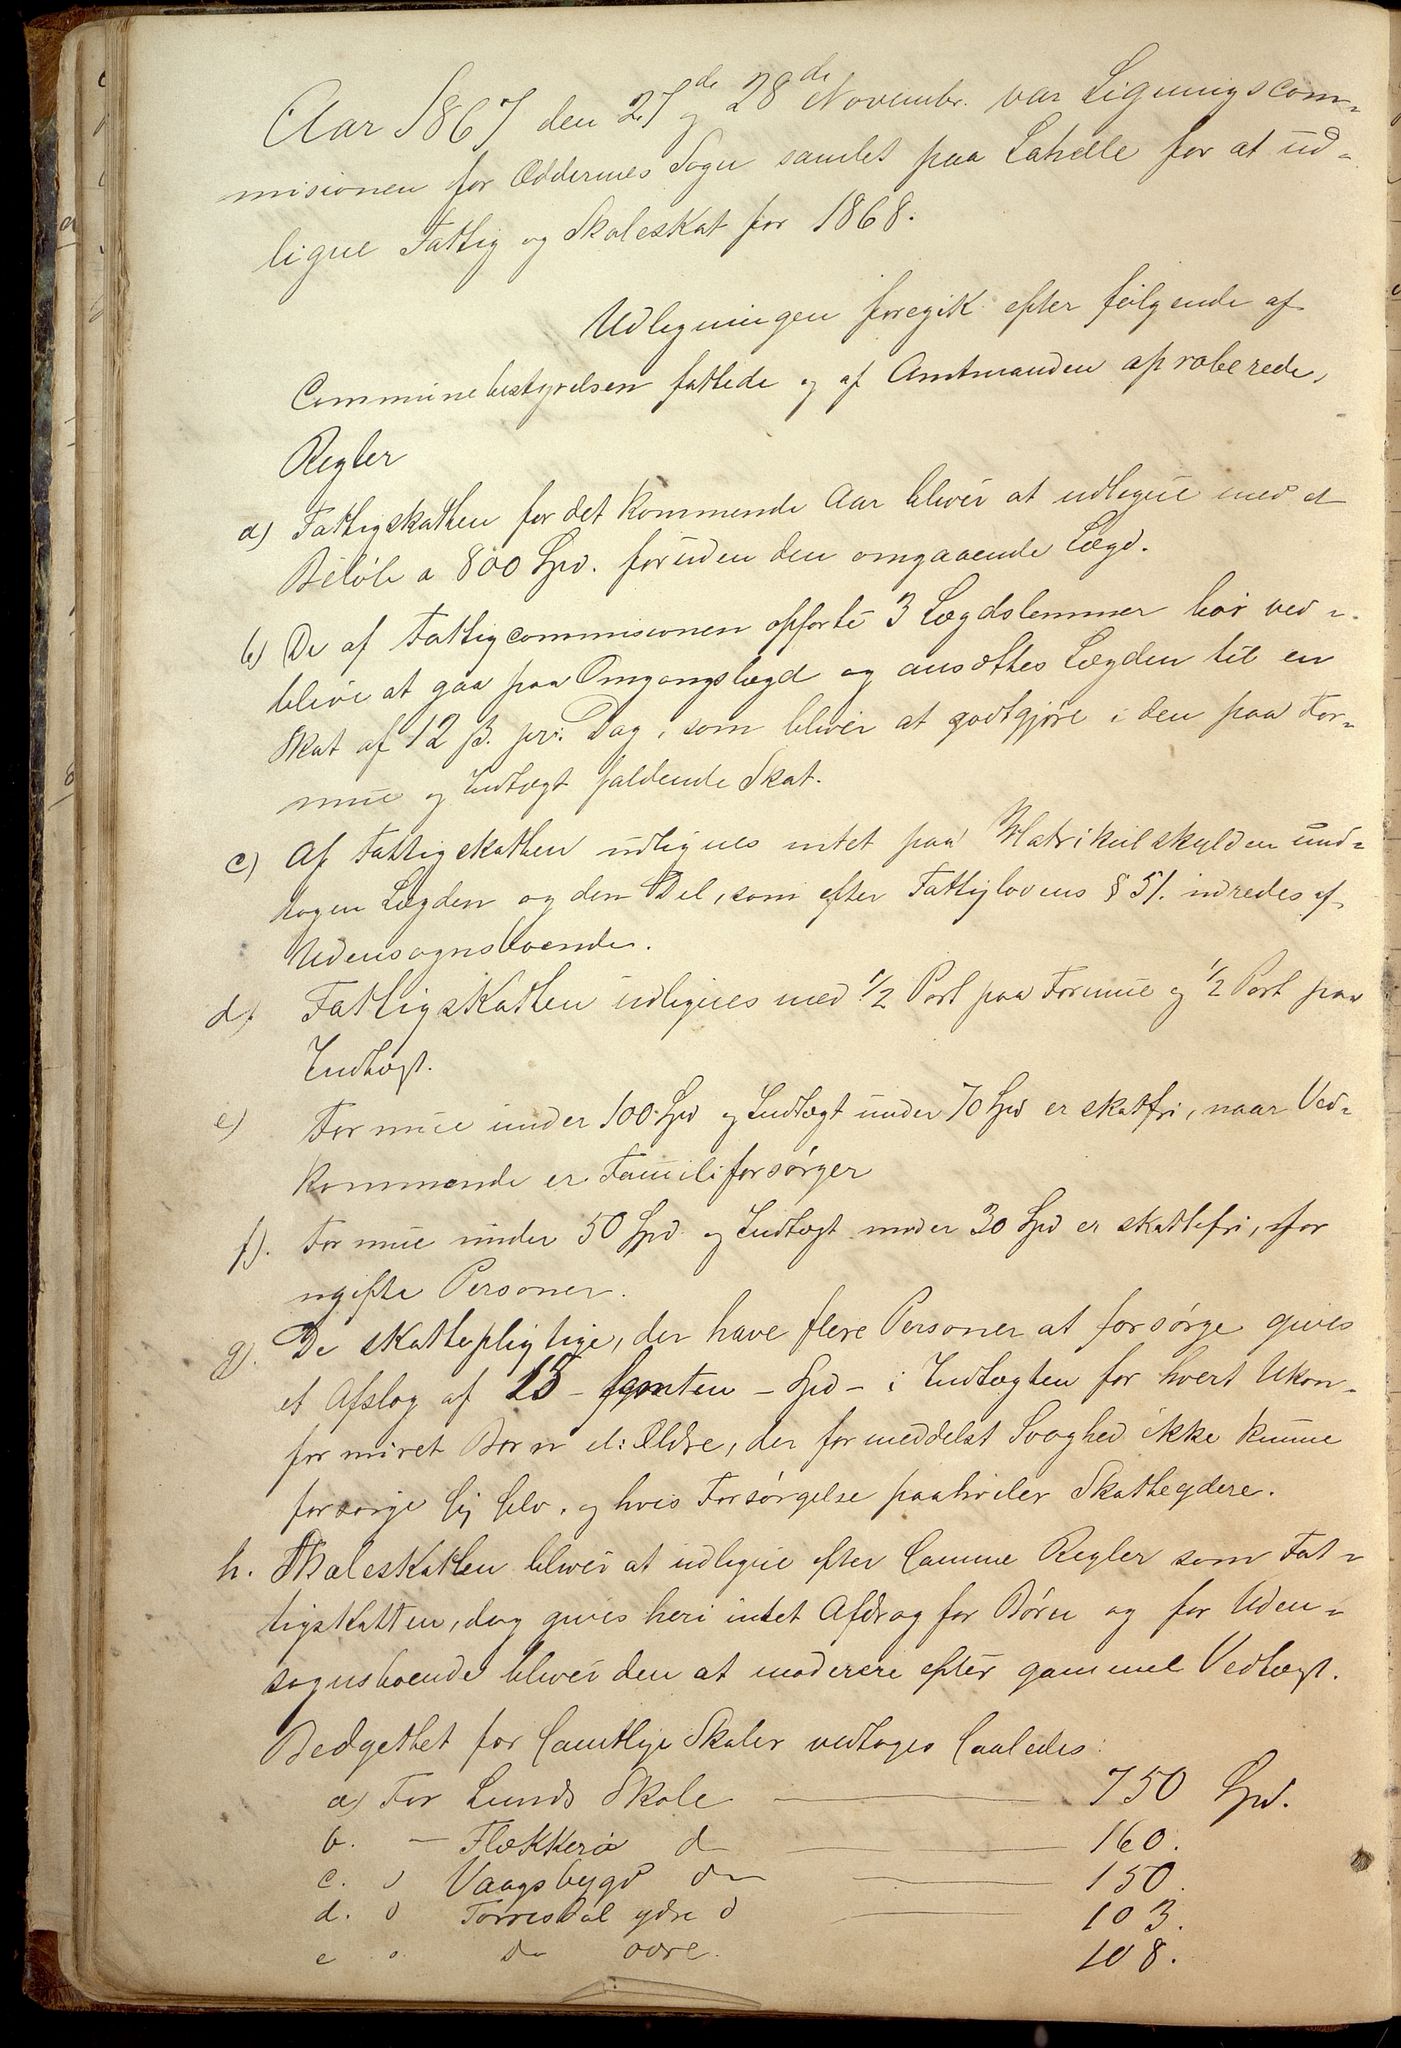 Aar 1867 den 27de og 28de Novembr. var Ligningscom-
misionen for Oddernes Sogn samlet paa Lahelle for at ud-
ligne Fattig og Skoleskat for 1868.
Udligningen foregik efter følgende af
Communebestyrelsen fattede og af Amtmanden aproberede,
Regler
a) Fattigskatten for det kommende Aar bliver at udligne med et
Beløb a 800 Spd. foruden den omgaaende Lægd.
b) De af Fattigcommisionen opførte 3 Lægdslemmer bør ved-
blive at gaa paa Omgangslægd og ansættes Lægden til en
Skat af 12 ß. pr. Dag, som bliver at godtgjøre i den paa For-
mue og Indtægt faldende Skat.
c) Af Fattigskatten udlignes intet paa Matrikulskylden und-
tagen Lægden og den Del, som efter Fattiglovens § 51. udredes af
Udensognsboende.
d) Fattigskatten udlignes med 1/2 Part paa Formue og 1/2 Part paa
Indtægt.
e) Formue under 100 Spd og Indtægt under 70 Spd er skatfri, naar Ved-
kommende er Familiforsørger
f). Formue under 50 Spd og Indtægt under 30 Spd er skattefri, for
ugifte Personer.
g). De skattepligtige, der have flere Personer at forsørge gives
et Afslag af 15 - femten - Spd - i Indtægten for hvert Ukon-
firmiret Barn el: Ældre, der formeddelst Svaghed ikke kunne
forsørge sig selv, og hvis Forsørgelse paahviler Skatteydere.
h. Skoleskatten bliver at udligne efter samme Regler som Fat-
tigskatten, dog gives heri intet Afdrag for Børn og for Uden-
sognsboende bliver den at moderere efter gammel Vedtægt.
Bedgettet for samtlige Skoler vedtages saaledes:
a) For Lunds Skole 750 Spd.
b. — Flekkerø d 160.
c. " Vaagsbygd do 150.
d. " Torrisdal ydre d 103.
e " do øvre. 108.